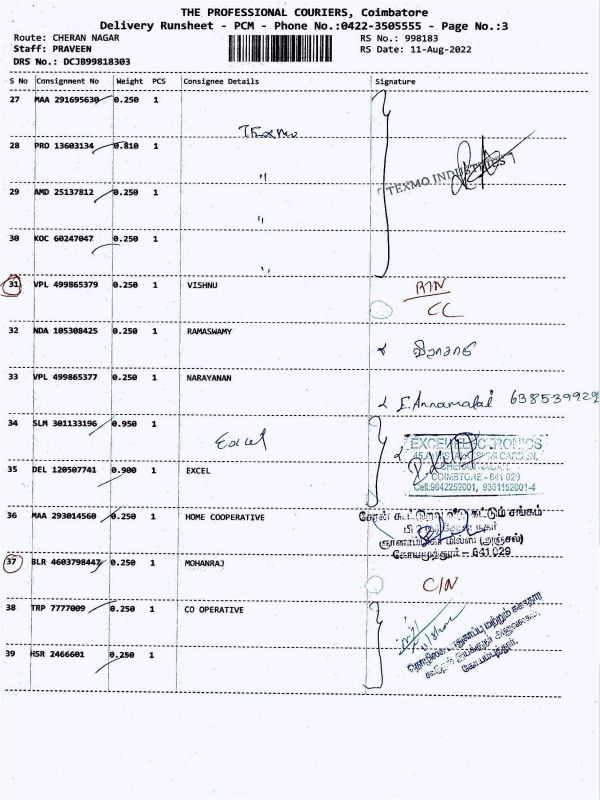 THE PROFESSIONAL COURIERS, Coimbatore
Delivery Runsheet - PCM - Phone No.:0422-3505555 - Page No.:3
Route: CHERAN NAGAR RS No.: 998183
Staff: PRAVEEN RS Date: 11-Aug-2022
DRS No.: DCJB99818303
S No Consignment No Weight PCS Consignee Details Signature
27 MAA 291695630 0.250 1
Texmo
28 PRO 13603134 0.810 1
"
TEXMO INDUSTRIES
29 AMD 25137812 0.250 1
"
30 KOC 60247047 0.250 1
"
31 VPL 499865379 0.250 1 VISHNU RTN
CC
32 NDA 105308425 0.250 1 RAMASWAMY
33 VPL 499865377 0.250 1 NARAYANAN
E. Annamalai 638539929
34 SLM 301133196 0.950 1
Excel
EXCEL ELECTRONICS
35 DEL 120507741 0.900 1 EXCEL
COIMBTORE - 641 029
Cell:9842252001, 9361152001-4
36 MAA 293014560 0.250 1 HOME COOPERATIVE
கட்டும் சங்கம்
நகர்
மில்ஸ் (அஞ்சல்)
கோயமுத்தூர் - 641 029
37 BLR 4603798447 0.250 1 MOHANRAJ
C/N
38 TRP 7777009 0.250 1 CO OPERATIVE
மற்றும்
39 HSR 2466601 0.250 1